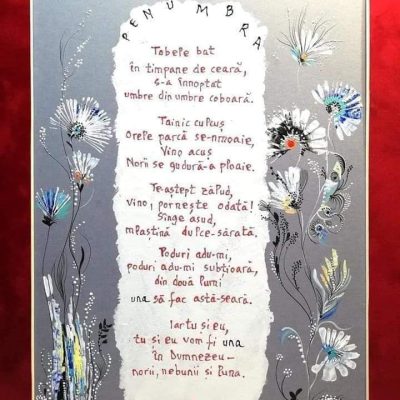 PENUMBRA
Tobele bat
în timpane de ceară,
s-a înnoptat
umbre din umbre coboară.
Tainic culcuș
orele parcă se-nmoaie,
Vino acuș
Norii se gudură-a ploaie.
Te-aștept zălud,
vino, pornește odată!
Sînge asud,
mlaștină dulce-sărată.
Poduri adu-mi,
poduri adu-mi subțioară,
din două lumi
una să fac astă-seară.
Iar tu și eu,
tu și eu vom fi una
în Dumnezeu-
norii, nebunii și luna.